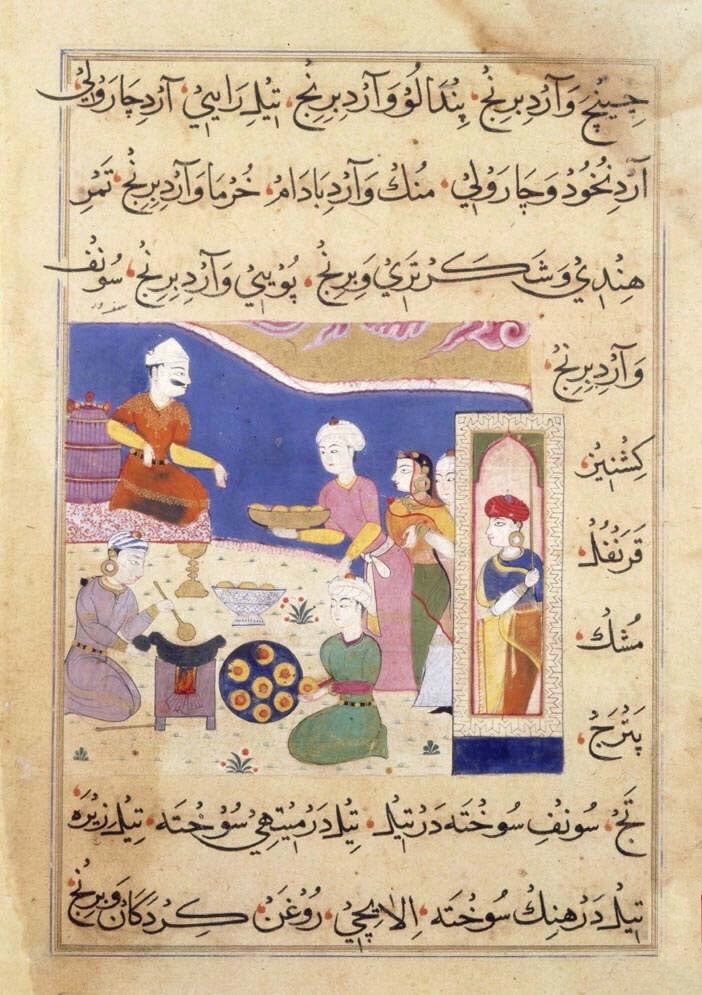 چینچ وَ آرْدِ بِرِنْجْ، پِنْدَالُوْ وَ آرْدِ بِرِنْجْ، تِیْلِ رَایِیْ، آرْدِ چَارُولِیْ
آرْدِ نُخُوْدْ وَ چَارُولِیْ، مُنْكْ وَ آرْدِ بَادَامْ، خُرْمَا وَ آرْدِ بِرِنْجْ، تَمْرِ
هِنْدِيْ وَ شَكَرْ تَرِيْ وَ بِرِنْجْ، پُوْیِيْ وَ آرْدِ بِرِنْجْ، سُونْفْ
وَ آرْدِ بِرِنْجْ
كِشْنِیْزْ،
قَرَنْفُلْ،
مُشْكْ،
پَتْرَجْ،
تَجْ، سُونْفِ سُوخْتَه دَرْ تِیْلْ، تِیْل دَرْ مِیْتْهِيْ سُوْخْتَه، تِیْلِ زِیْرَه
تِیْل دَرْ هِنْكْ سُوخْتَه، اِلَایِچِيْ، رُوْغَنْ، كِرْدَگَانْ وَ بِرِنْجْ